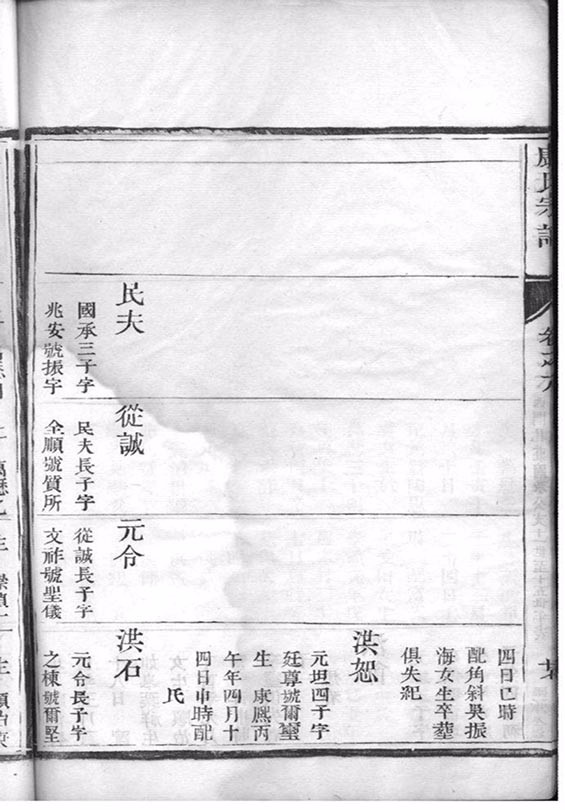 氏宗譜
卷之
民夫
國承三子字
兆安號振宇
從誠
民夫長子字
全順號質所
元令
從誠長子字
文祚號聖儀
四日巳時
配角斜吳振
海女生卒塟
俱失紀
洪恕
元坦四子字
廷尊號爾璽
生 康熈丙
午年四月十
四日申時配
氏
洪石
元令長子字
之棟號爾堅